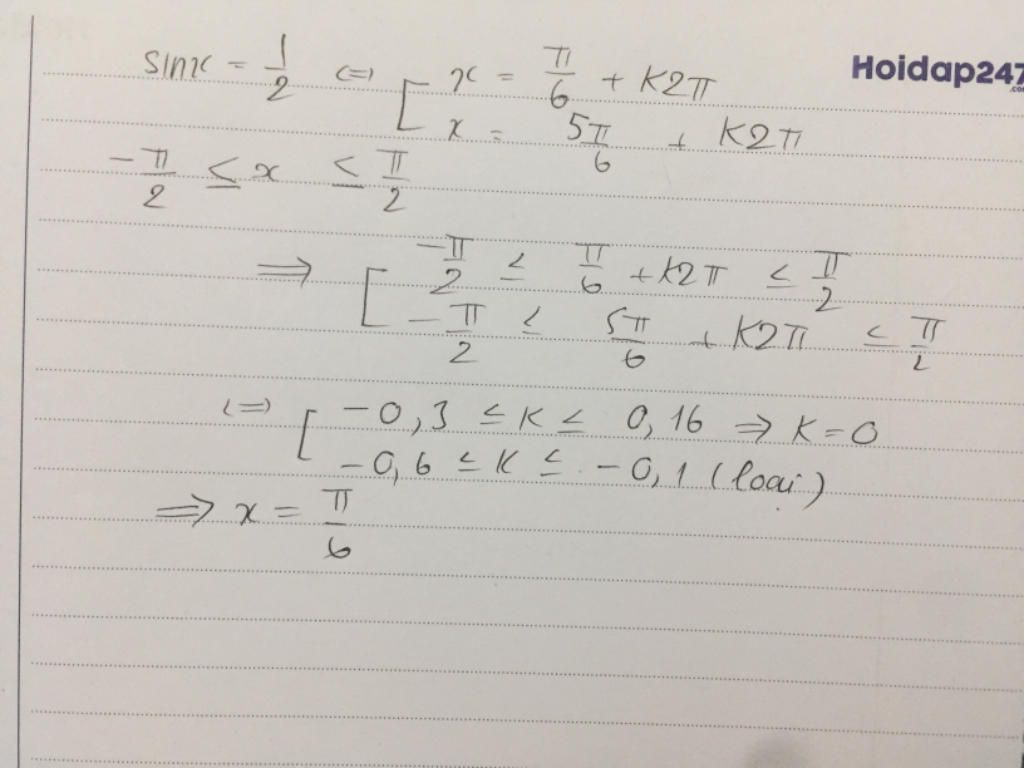 Hoidap247
.com
sinx = 1/2 <=> [ x = π/6 + K2π
x = 5π/6 + K2π
-π/2 ≤ x ≤ π/2
=> [ -π/2 ≤ π/6 + K2π ≤ π/2
-π/2 ≤ 5π/6 + K2π ≤ π/2
<=> [ -0,3 ≤ K ≤ 0,16 => K=0
-0,6 ≤ K ≤ -0,1 (loại)
=> x = π/6